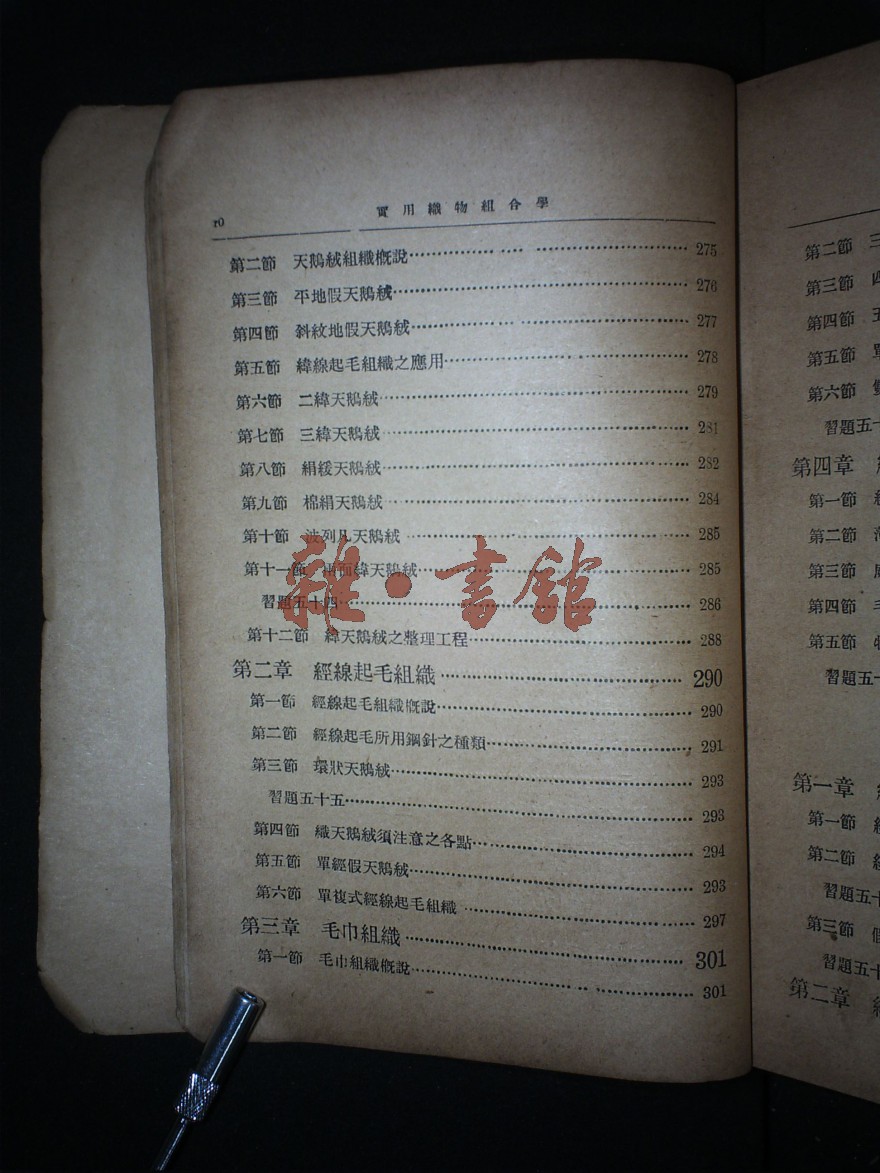 10
實用織物組合學
第二節 天鵝絨組織概說 275
第三節 平地假天鵝絨 276
第四節 斜紋地假天鵝絨 277
第五節 緯線起毛組織之應用 278
第六節 二緯天鵝絨 279
第七節 三緯天鵝絨 281
第八節 絹緞天鵝絨 282
第九節 棉絹天鵝絨 284
第十節 波列凡天鵝絨 285
第十一節 兩面緯天鵝絨 285
習題五十四 286
第十二節 緯天鵝絨之整理工程 288
第二章 經線起毛組織 290
第一節 經線起毛組織概說 290
第二節 經線起毛所用鋼針之種類 291
第三節 環狀天鵝絨 293
習題五十五 293
第四節 織天鵝絨須注意之各點 294
第五節 單經假天鵝絨 293
第六節 單複式經線起毛組織 297
第三章 毛巾組織 301
第一節 毛巾組織概說 301
雜·書館
第二節 三
第三節 四
第四節 五
第五節 單
第六節
習題五十
第四章
第一節
第二節
第三節
第四節 毛
第五節
習題五十
第一章
第一節
第二節
習題五十
第三節 假
習題五十
第二章